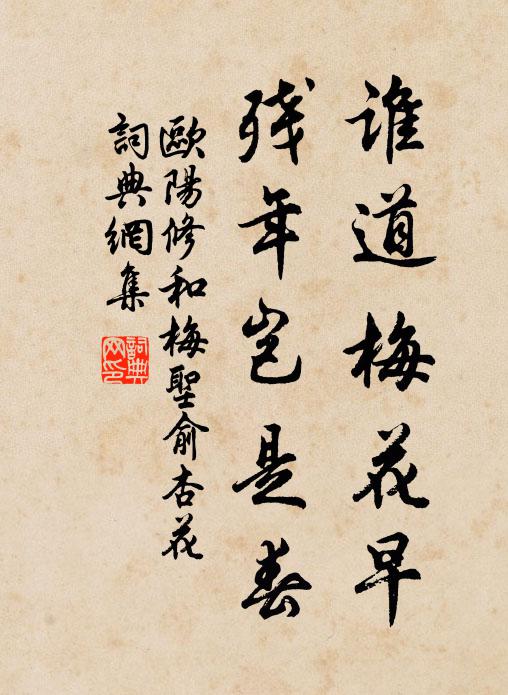 谁道梅花早
残年岂是春
歐陽修和梅聖俞杏花
詞典網集
詞典
网印